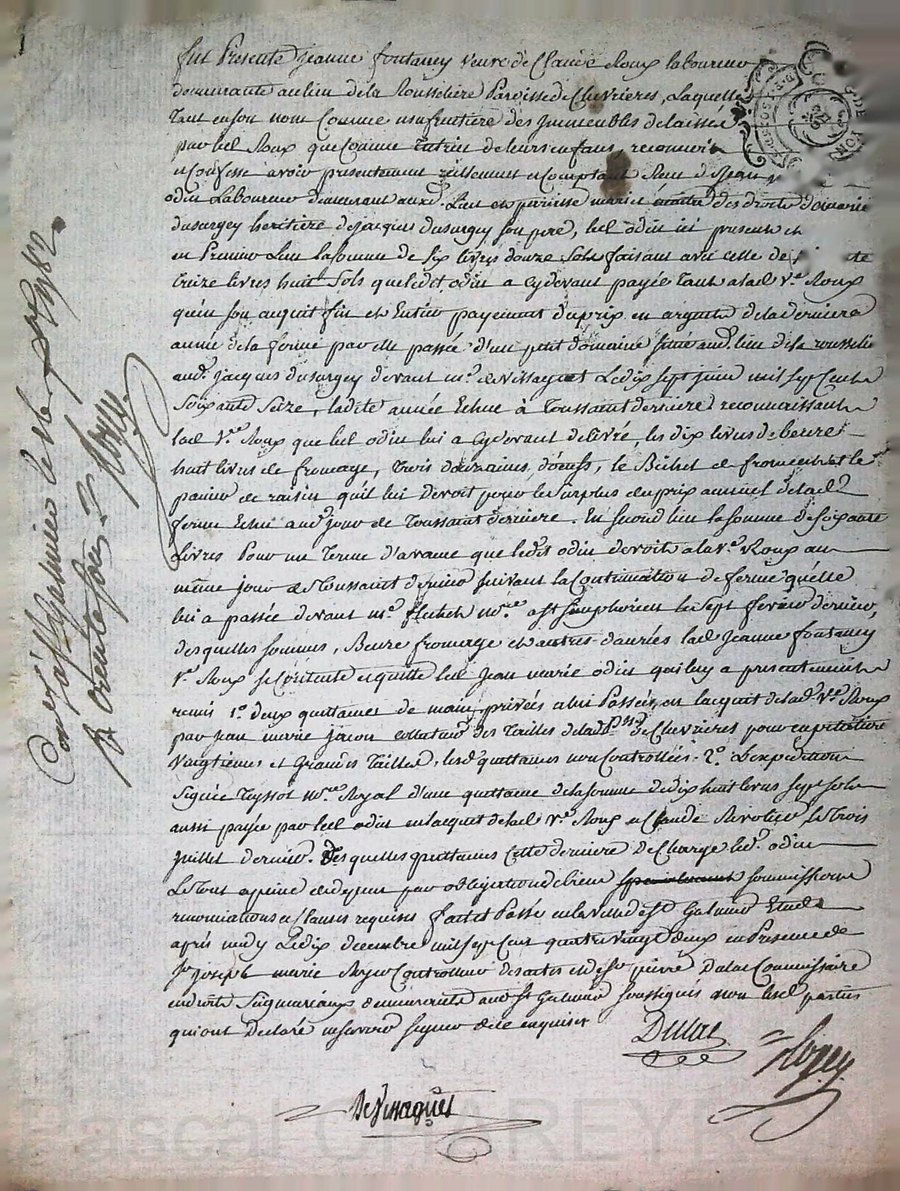 fut Presente jeanne fontaney veuve de Claude Roux laboureur
demeurante au lieu de la Rousseliere Paroisse de Chevrieres, Laquelle
Tant en son nom Comme usufruitiere des Immeubles delaissés
par led Roux que Comme tutrice de leurs enfans, reconnoit
et Confesse avoir presentement reellement et Comptant Reçu de Jean
odin Laboureur demeurant aud. Lieu et paroisse mari et des droits de marie
dusurgey heritiere de jacques dusurgey son pere, led odin ici present et
en Premier Lieu la somme de six livres douze sols faisant avec celle de
treize livres huit sols que ledit odin a cydevant payée tant a lad Ve. Roux
qu'en son acquit fin et Entier payement du prix en argent de la derniere
année de la ferme par elle passée d'un petit domaine situé aud. lieu de la rousseliere
aud. jacques dusurgey devant me. devissaguet Le dix sept juin mil sept Cent
Soixante Seize, ladite année Echue à Toussaint derniere reconnaissant
lad Ve. Roux que led odin lui a cydevant delivré, les dix livres de beurre
huit livres de fromage, trois douzaines d'oeufs, le Bichet de froment et le
panier de raisin qu'il lui devoit pour le surplus du prix annuel de lad
ferme Echu aud jour de Toussaint derniere. En second lieu la somme de soixante
Livres Pour un Terme d'avance que ledit odin devoit a la Ve. Roux au
même jour de Toussaint dernier suivant la Continuation de ferme qu'elle
lui a passée devant me. nore a st simphorien le sept fevrier dernier,
desquelles sommes, Beure fromage et autres danrées lad jeanne fontaney
Ve. Roux se Contente et quitte led jean marie odin qui luy a presentement
remis 1o. deux quittances de main privées a lui Passées en lacquit de lad Ve. Roux
par jean marie jacon collecteur des Tailles de lad Psse de Chevrieres pour capitation
Vingtiemes et Grandes Tailles, lesd quittances non Controllées. 2o. L'expedition
signée Teyssot nore Royal d'une quittance de la somme de dix huit livres sept sols
aussi payée par led odin en lacquit de lad Ve. Roux a Claude Rivolier Le trois
juillet dernier. desquelles quittances Cette derniere deCharge led. odin
Le tout a peine de depens par obligation de biens soumissions
renonciations et Clauses requises fait et Passé en la ville de st Galmier Etude
après midy Le dix decembre mil sept cent quatre vingt deux en Presence de
Sr joseph marie Royer Controlleur des actes et de sr pierre Dulac Commissaire
en droits Seigneuriaux demeurants aud st Galmier soussignés non lesd parties
qui ont declaré ne savoir signer de ce enquises
Dulac
Royer
Devissaguet
Conlé a st galmier le 1782
R trente sols
Royer
Pascal CHAREYRON